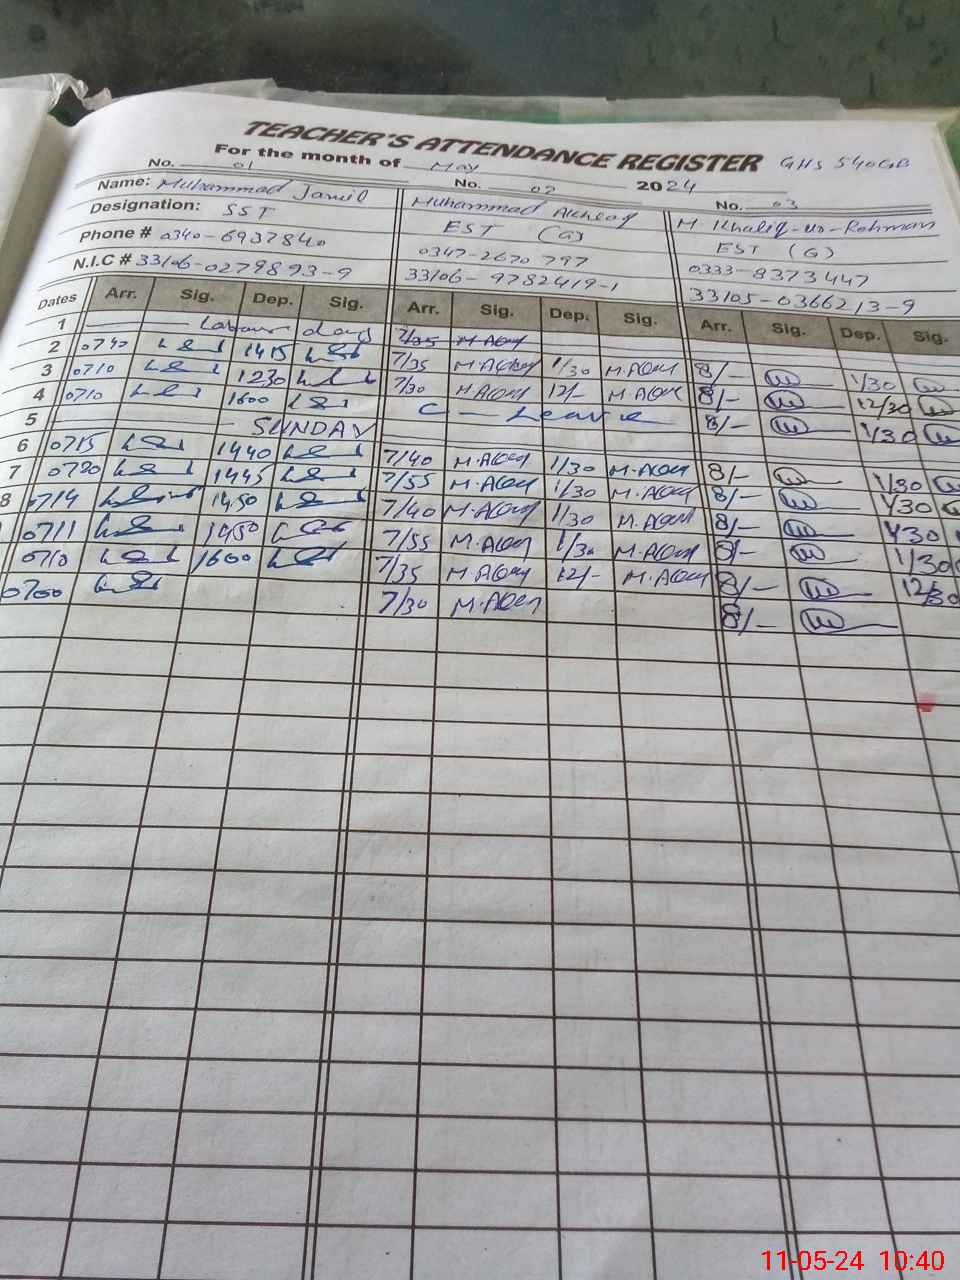 TEACHER'S ATTENDANCE REGISTER GHS 540GB
For the month of May 2024
No. 01 No. 02 No. 03
Name: Muhammad Jamil Muhammad Akhlaq M. Khaliq-ur-Rehman
Designation: SST EST (G) EST (G)
Phone # 0340-6937840 0347-2670797 0333-8373447
N.I.C # 33106-0279893-9 33106-9782419-1 33105-0366213-9
Dates Arr. Sig. Dep. Sig. Arr. Sig. Dep. Sig. Arr. Sig. Dep. Sig.
1 Labour day 7/35
2 0740 1415 7/35 1/30 8/- 1/30
3 0710 1230 7/30 12/- 8/- 12/30
4 0710 1600 C - Leave 8/- 1/30
5 SUNDAY
6 0715 1440 7/40 1/30 8/- 1/30
7 0720 1445 7/55 1/30 8/- 1/30
8 0714 1450 7/40 1/30 8/- 1/30
0711 1450 7/55 1/30 8/- 1/30
0710 1600 7/35 12/- 8/- 12/30
0700 7/30 8/-
11-05-24 10:40